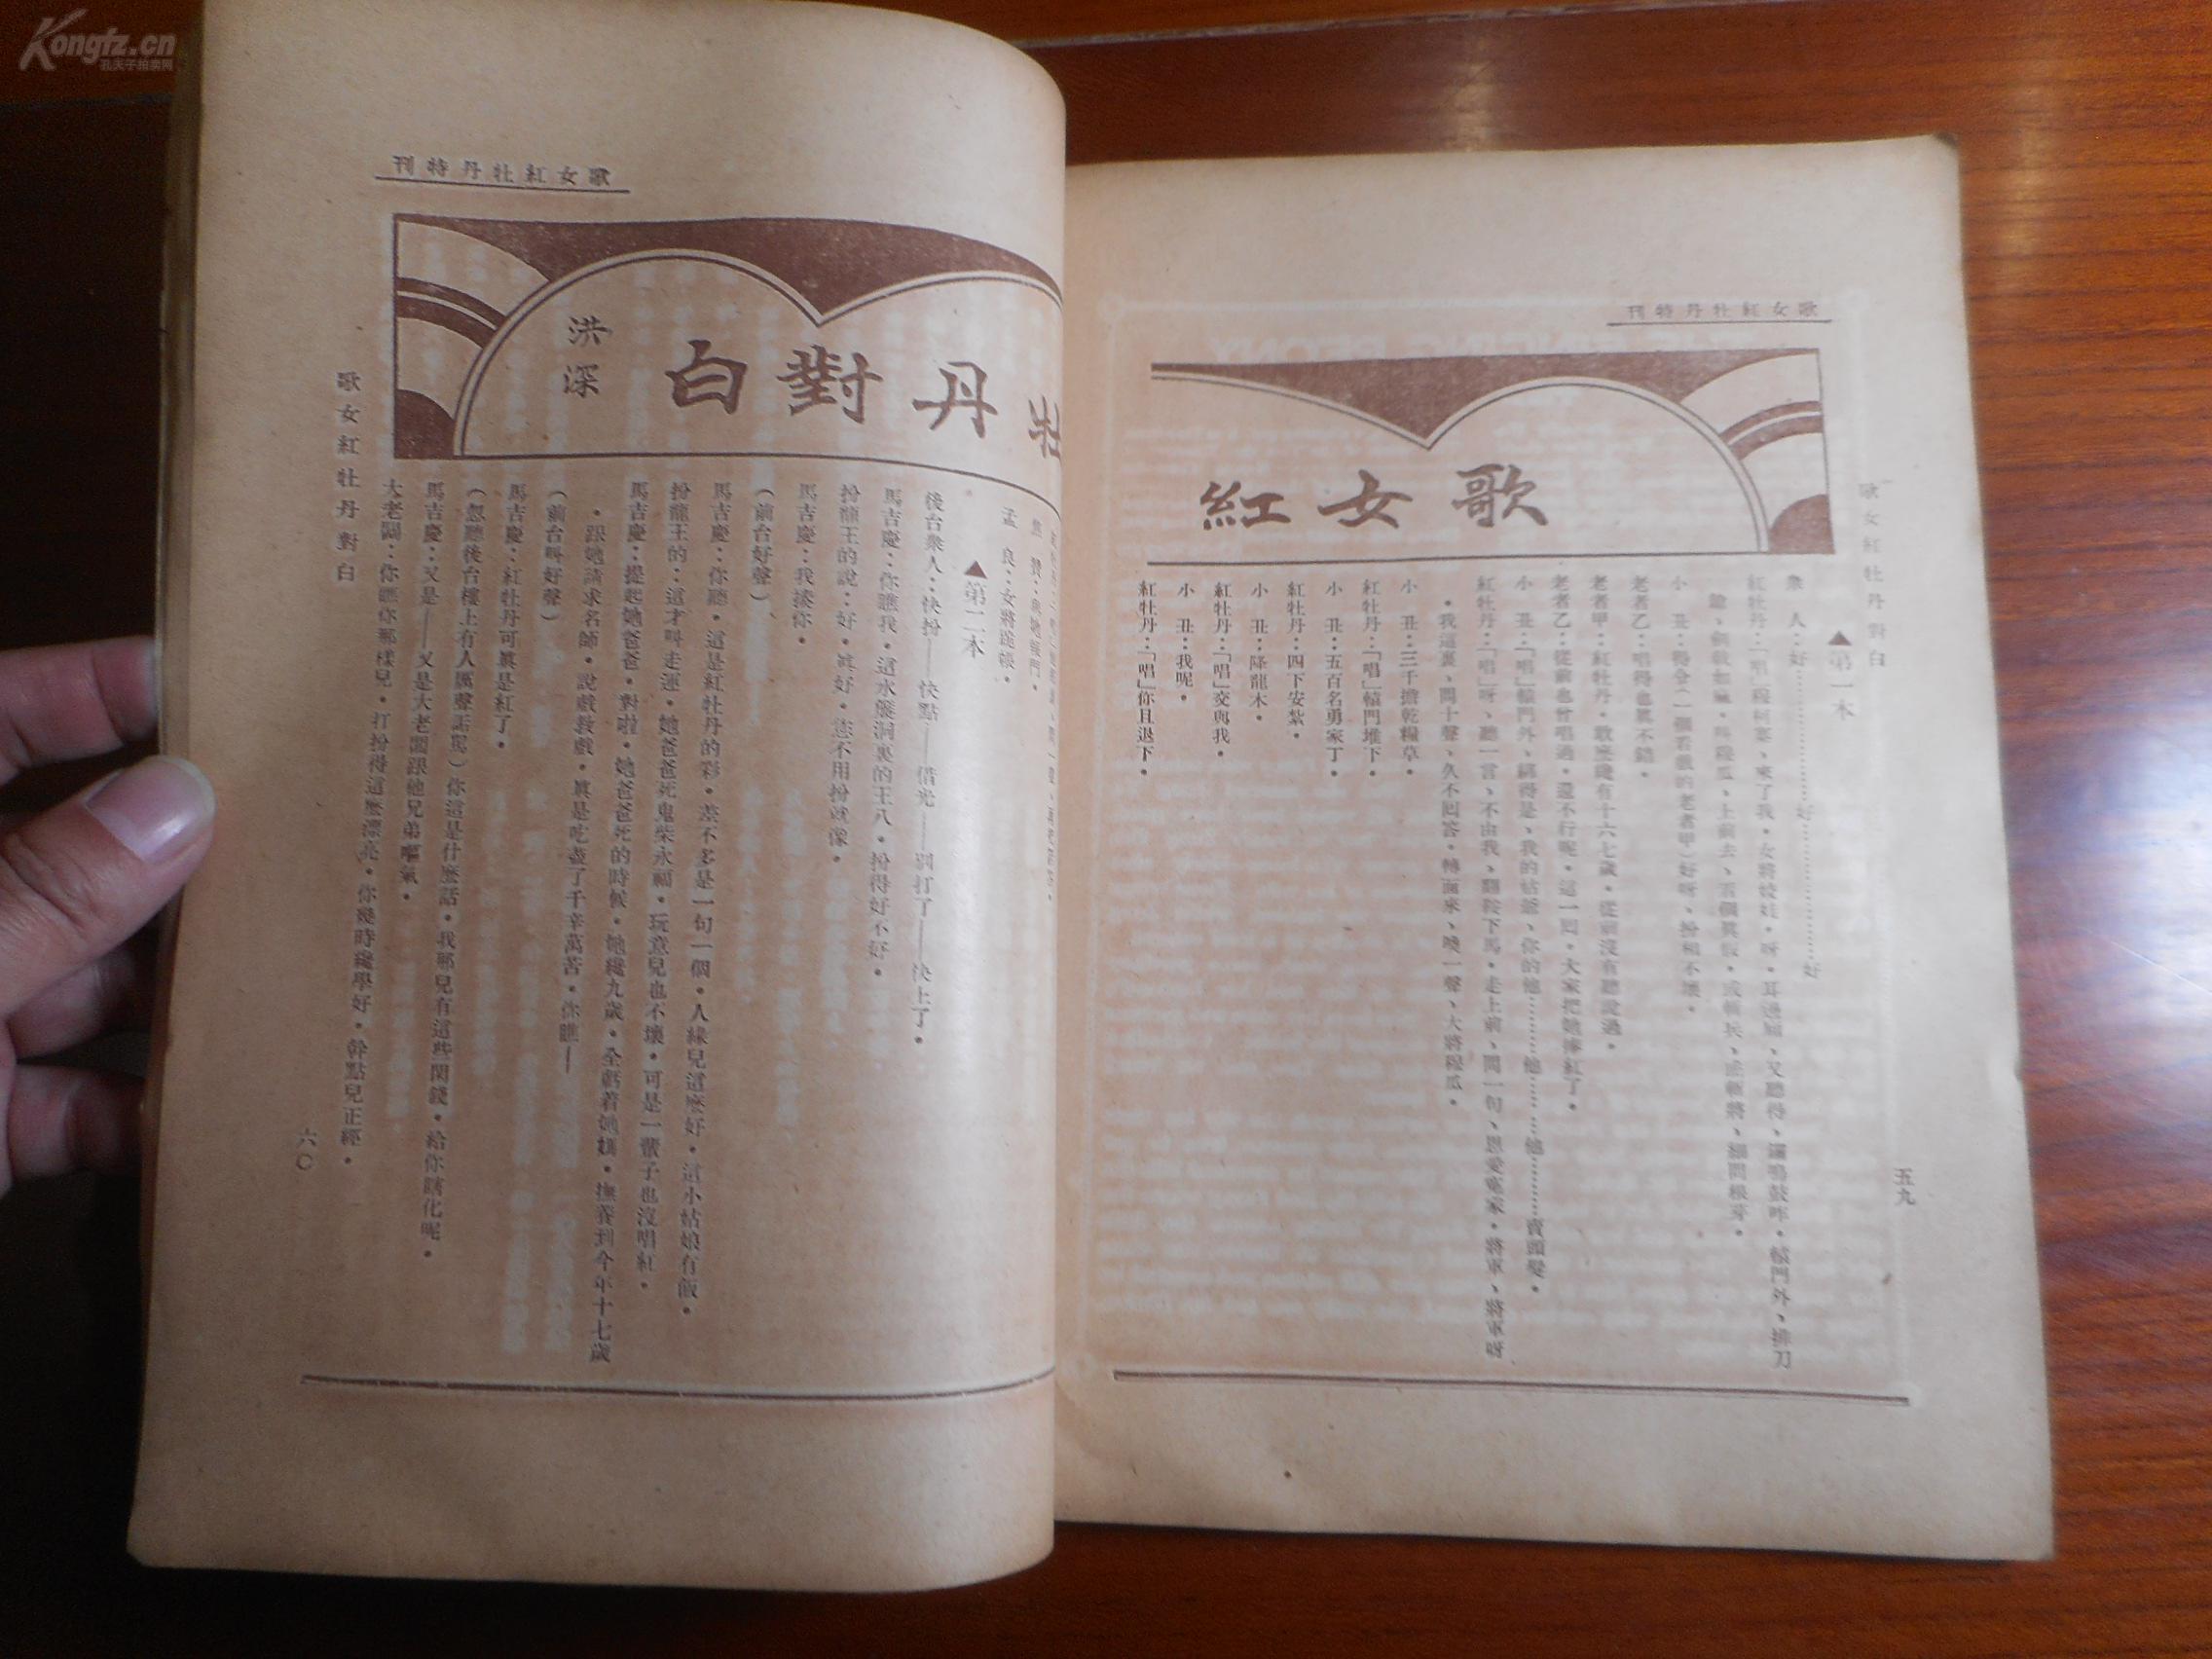 Kongfz.cn
孔夫子拍卖网
歌女紅牡丹特刊
歌女紅
歌女紅牡丹對白
五九
▲第一本
衆　人：好………………好………………好
小　丑：得令（一個看戲的老者甲）好呀、扮相不壞。
老者乙：唱得也眞不錯。
老者甲：紅牡丹。歲有十六七歲。從前沒有聽說過。
老者乙：從前也曾唱過。還不行呢。這一回。大家把她捧紅了。
小　丑：「唱」轅門外、綁得是、我的姑爺、你的他………他………他………賣頭髮。
紅牡丹：「唱」呀、聽一言、不由我、翻鞍下馬。走上前、問一句、恩愛寃家。將軍、將軍呀
。我這裏、問十聲、久不囘答。轉面來、喚一聲、大將程瓜。
小　丑：三千擔乾糧草。
紅牡丹：「唱」轅門堆下。
小　丑：五百名勇家丁。
紅牡丹：四下安紮。
小　丑：降龍木。
紅牡丹：「唱」交與我。
小　丑：我呢。
紅牡丹：「唱」你且退下。
歌女紅牡丹特刊
牡丹對白
洪深
孟　良：女將進帳。
▲第二本
後台衆人：快扮——快點——借光——別打了——快上了。
馬吉慶：你瞧我。這水盤洞裏的王八。扮得好不好。
扮龍王的說：好。眞好。您不用扮就像。
馬吉慶：我揍你。
（前台好聲）
馬吉慶：你聽。這是紅牡丹的彩。差不多是一句一個。人緣兒這麽好。這小姑娘有飯。
扮龍王的：這才叫走運。她爸爸死鬼柴永福。玩意兒也不壞。可是一輩子也沒唱紅。
馬吉慶：提起她爸爸。對啦。她爸爸死的時候。她纔九歲。全虧着她媽。撫養到今年十七歲
。跟她請求名師。說戲敎戲。眞是吃盡了千辛萬苦。你瞧——
（前台叫好聲）
馬吉慶：紅牡丹可眞是紅了。
（忽聽後台樓上有人厲聲詬駡）你這是什麽話。我那兒有這些閑錢。給你瞎化呢。
馬吉慶：又是——又是大老闆跟他兄弟嘔氣。
大老闆：你瞧你那樣兒。打扮得這麽漂亮。你幾時纔學好。幹點兒正經。
歌女紅牡丹對白
六〇